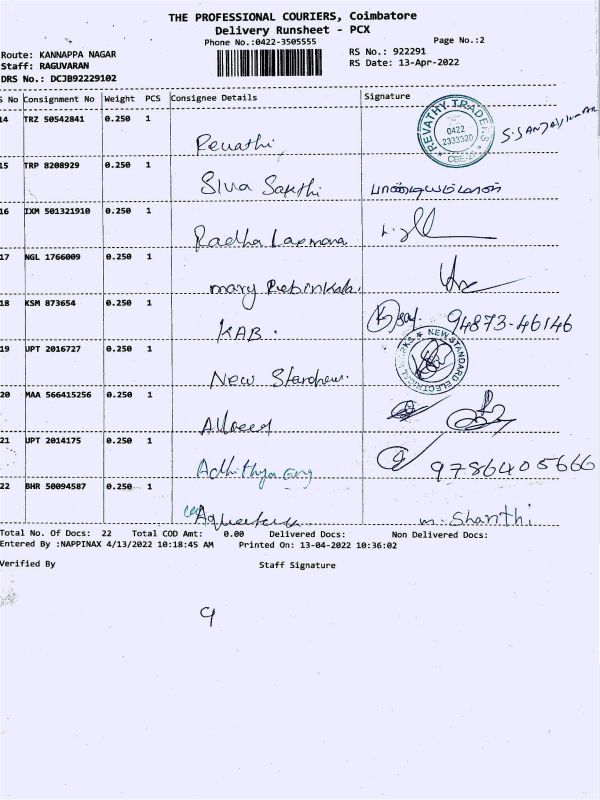 THE PROFESSIONAL COURIERS, Coimbatore
Delivery Runsheet - PCX
Phone No.:0422-3505555 Page No.:2
Route: KANNAPPA NAGAR RS No.: 922291
Staff: RAGUVARAN RS Date: 13-Apr-2022
DRS No.: DCJB92229102
S No Consignment No Weight PCS Consignee Details Signature
14 TRZ 50542841 0.250 1
Revathi REVATHY TRADERS 0422 2333320 CBE S.SANJAYKUMAR
15 TRP 8208929 0.250 1
Siva Sakthi
16 IXM 501321910 0.250 1
Radha
17 NGL 1766009 0.250 1
mary
18 KSM 873654 0.250 1
KAB. 94873-46146
19 UPT 2016727 0.250 1
New NEW STANDARD ELECTRICAL WORKS
20 MAA 566415256 0.250 1
21 UPT 2014175 0.250 1
Adhithya Eng 9786405666
22 BHR 50094587 0.250 1
m. Shanthi
Total No. Of Docs: 22 Total COD Amt: 0.00 Delivered Docs: Non Delivered Docs:
Entered By :NAPPINAX 4/13/2022 10:18:45 AM Printed On: 13-04-2022 10:36:02
Verified By Staff Signature
9